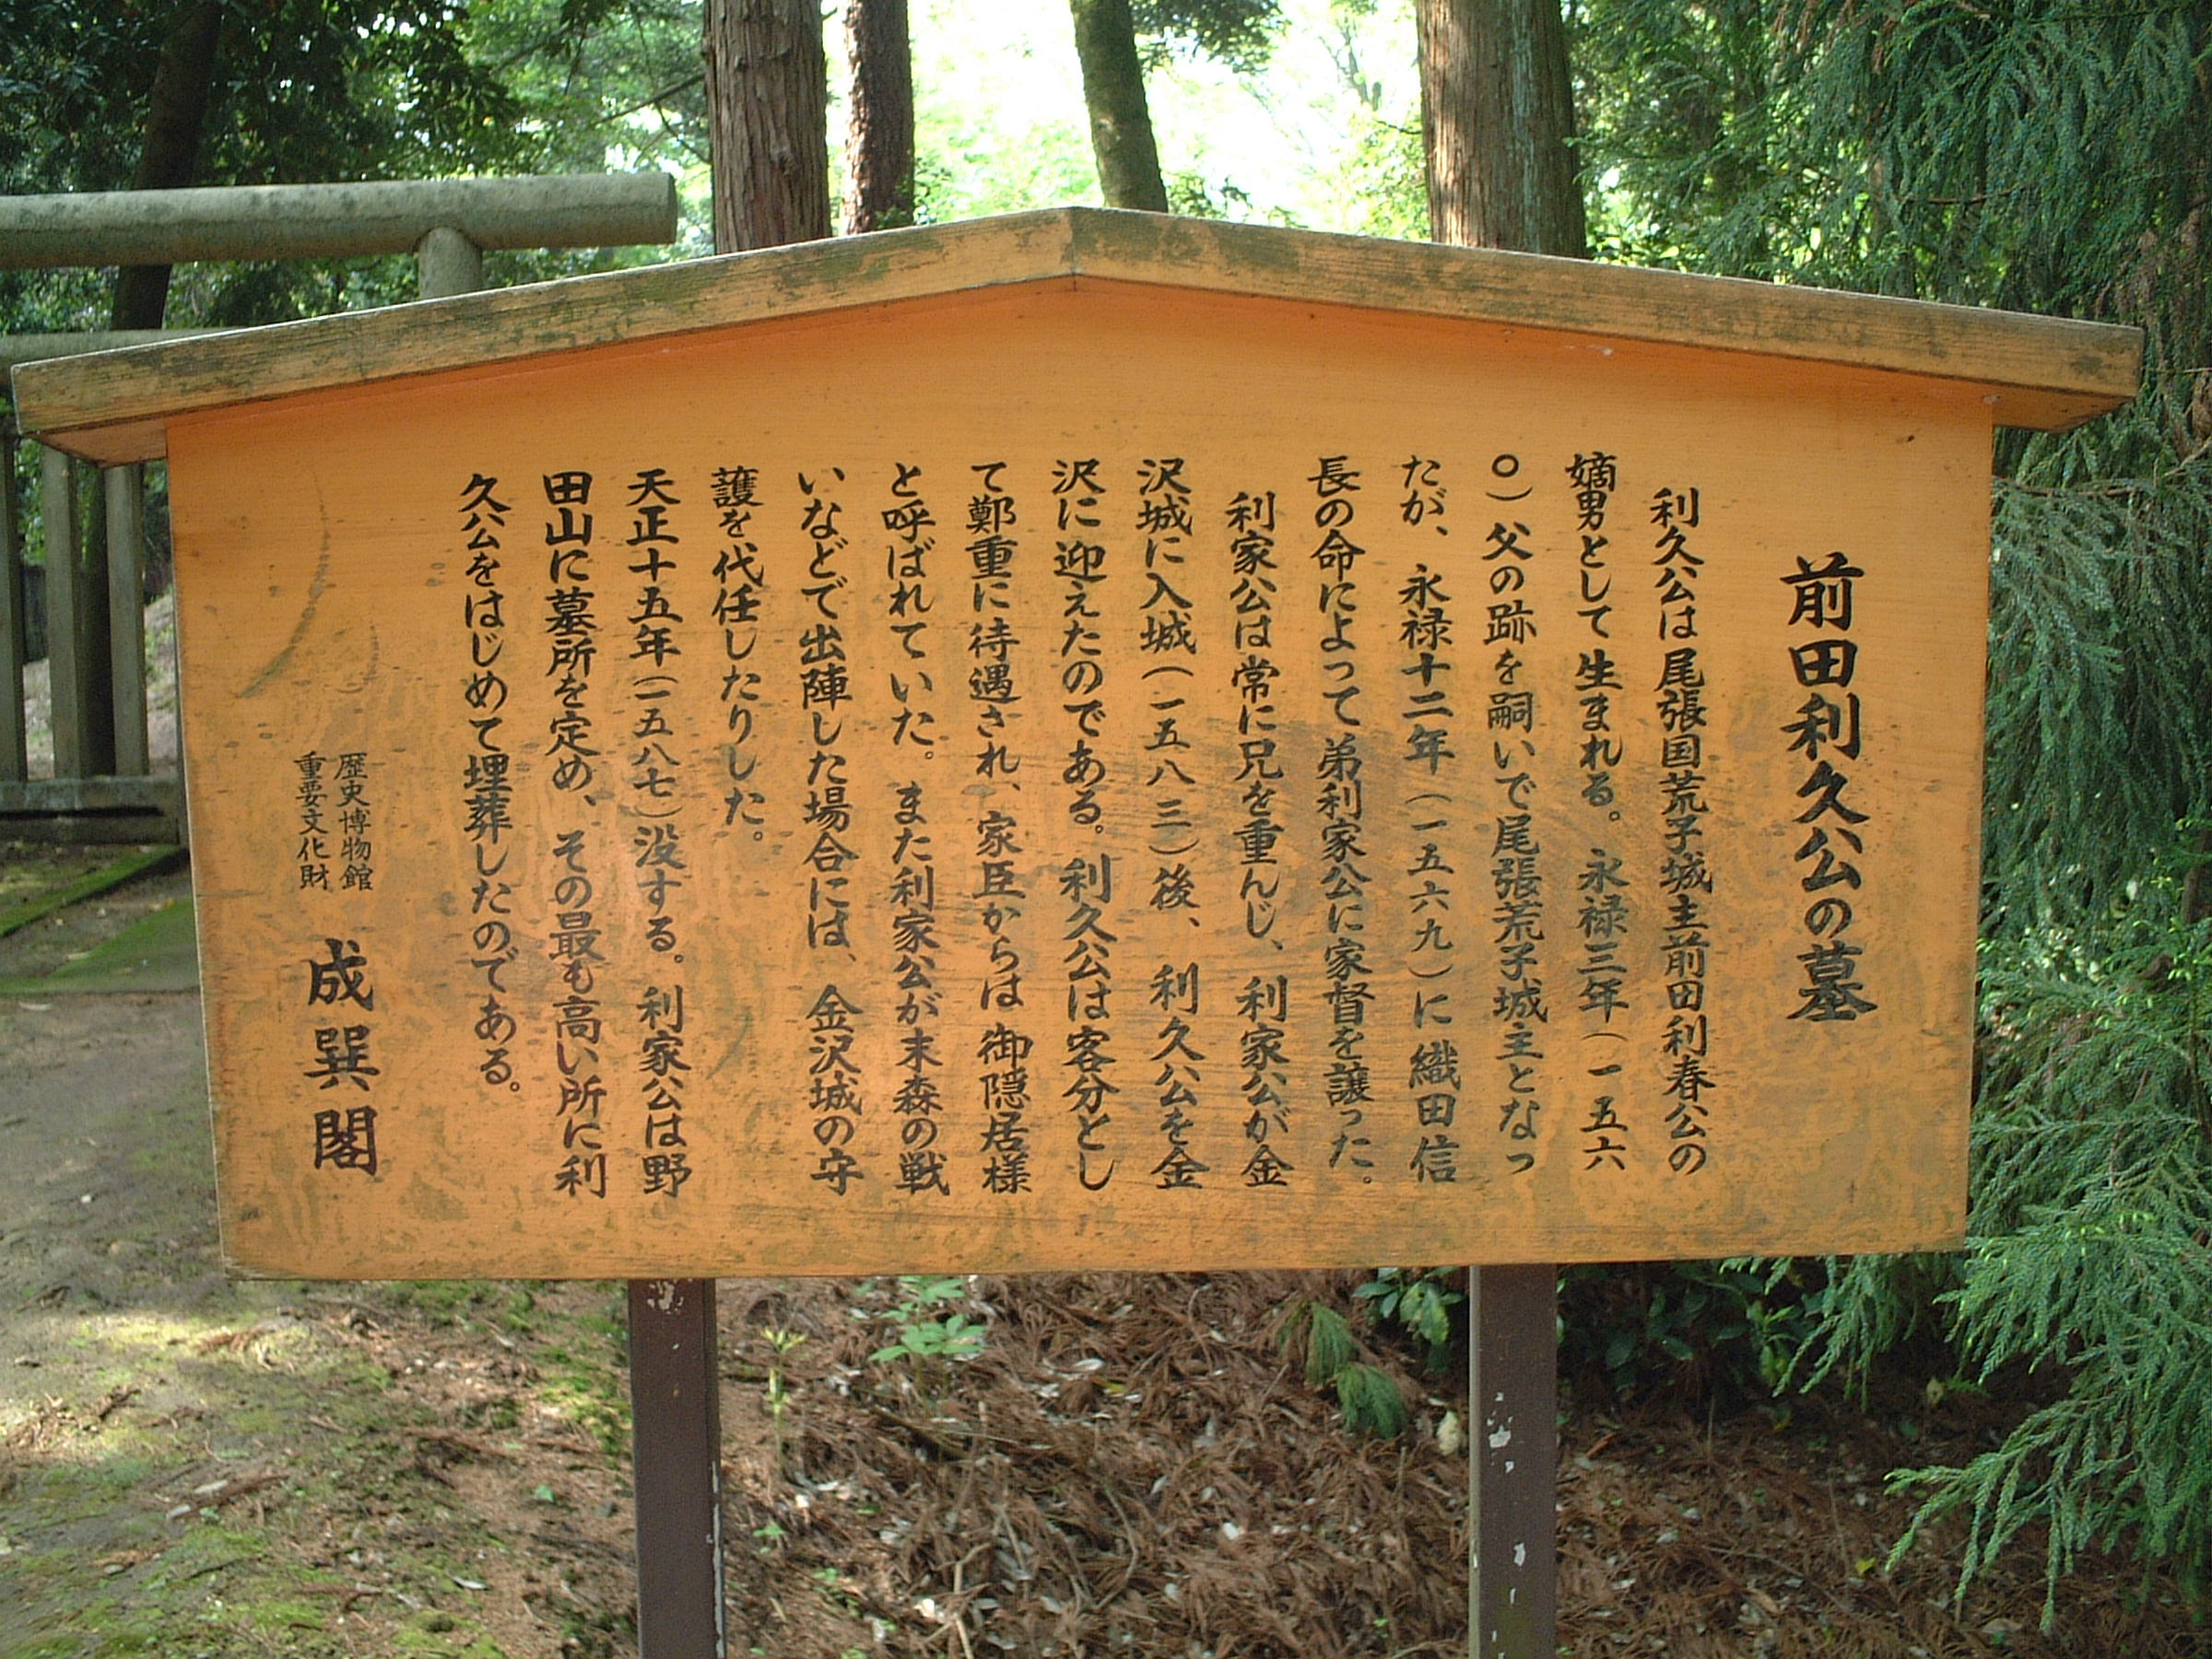 前田利久公の墓
利久公は尾張国荒子城主前田利春公の
嫡男として生まれる。永禄三年(一五六
〇)父の跡を嗣いで尾張荒子城主となっ
たが、永禄十二年(一五六九)に織田信
長の命によって弟利家公に家督を譲った。
利家公は常に兄を重んじ、利家公が金
沢城に入城(一五八三)後、利久公を金
沢に迎えたのである。利久公は客分とし
て鄭重に待遇され、家臣からは御隠居様
と呼ばれていた。また利家公が末森の戦
いなどで出陣した場合には、金沢城の守
護を代任したりした。
天正十五年(一五八七)没する。利家公は野
田山に墓所を定め、その最も高い所に利
久公をはじめて埋葬したのである。
歴史博物館
重要文化財
成巽閣